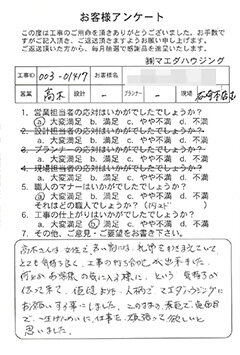 お客様アンケート
この度は工事のご用命を頂きありがとうございました。お手数で
すがご記入頂き、ご返送頂きますようお願い申し上げます。
ご返送頂いた方から、毎月抽選で感謝品を進呈いたします。
㈱マエダハウジング
工事ID 003-01417 お客様名
営業 高木 設計 - プランナー - 現場
1. 営業担当者の応対はいかがでしたでしょうか?
a. 大変満足 b. 満足 c. やや不満 d. 不満
2. 設計担当者の応対はいかがでしたでしょうか?
a. 大変満足 b. 満足 c. やや不満 d. 不満
3. プランナーの応対はいかがでしたでしょうか?
a. 大変満足 b. 満足 c. やや不満 d. 不満
4. 現場担当者の応対はいかがでしたでしょうか?
a. 大変満足 b. 満足 c. やや不満 d. 不満
5. 職人のマナーはいかがでしたでしょうか?
a. 大変満足 b. 満足 c. やや不満 d. 不満
それはどの職人でしょうか?
6. 工事の仕上がりはいかがでしたでしょうか?
a. 大変満足 b. 満足 c. やや不満 d. 不満
7. その他、ご意見・ご要望をお書き下さい。
高木さんは
とても気持ち良く、工事の打ち合わせが出来ました。
何とかお客様の気に入る様に、という気持ちが
伝って来て、値段よりも、人柄で、マエダハウジングに
お願いする事にしました。このまま、素直で、真面目
で、一生けんめいに、仕事を、頑張って欲しいと
思いました。